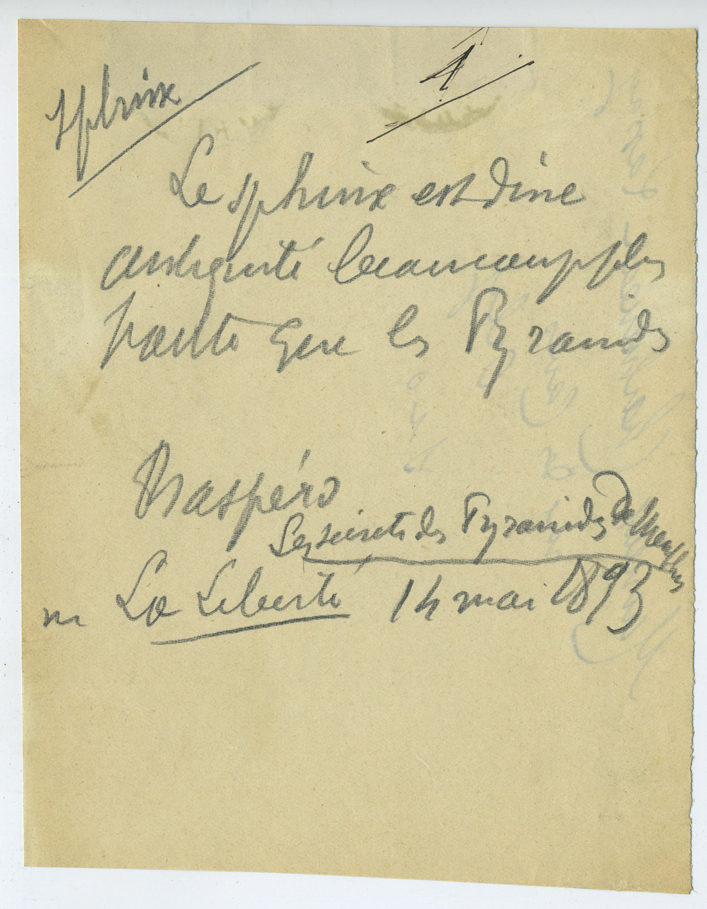 Sphinx
1
Le sphinx est d'une
antiquité beaucoup plus
haute que les Pyramides
Maspéro
Les secrets des Pyramides de Memphis
in La Liberté 14 mai 1893